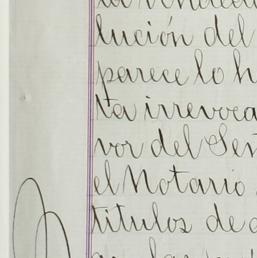 la vendedo
lución del
parece lo h
ta irrevoca
vor del Señ
el Notario
titulos de